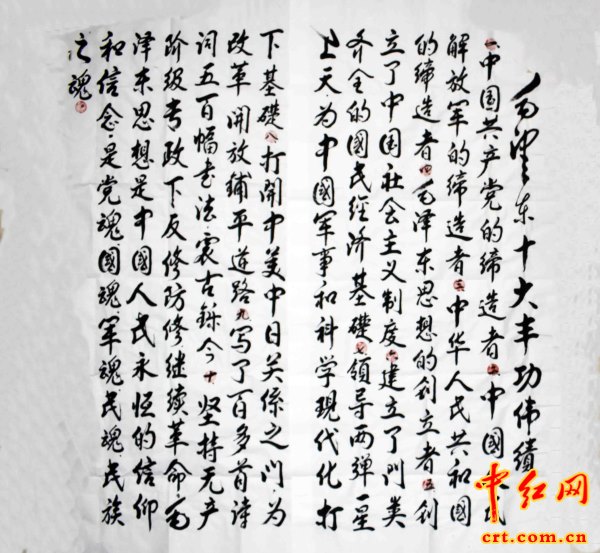 毛泽东十大丰功伟绩
一中国共产党的缔造者二中國人民
解放军的缔造者三中华人民共和國
的缔造者四毛泽东思想的创立者五创
立了中国社会主义制度六建立了门类
齐全的國民经济基礎七领导两弹一星
上天为中國军事和科学现代化打
下基礎八打開中美中日关係之门为
改革開放铺平道路九写了百多首诗
词五百幅书法震古铄今十坚持无产
阶级专政下反修防修继续革命毛
泽东思想是中國人民永恒的信仰
和信念是党魂國魂军魂民魂民族
之魂
中红网
crt.com.cn